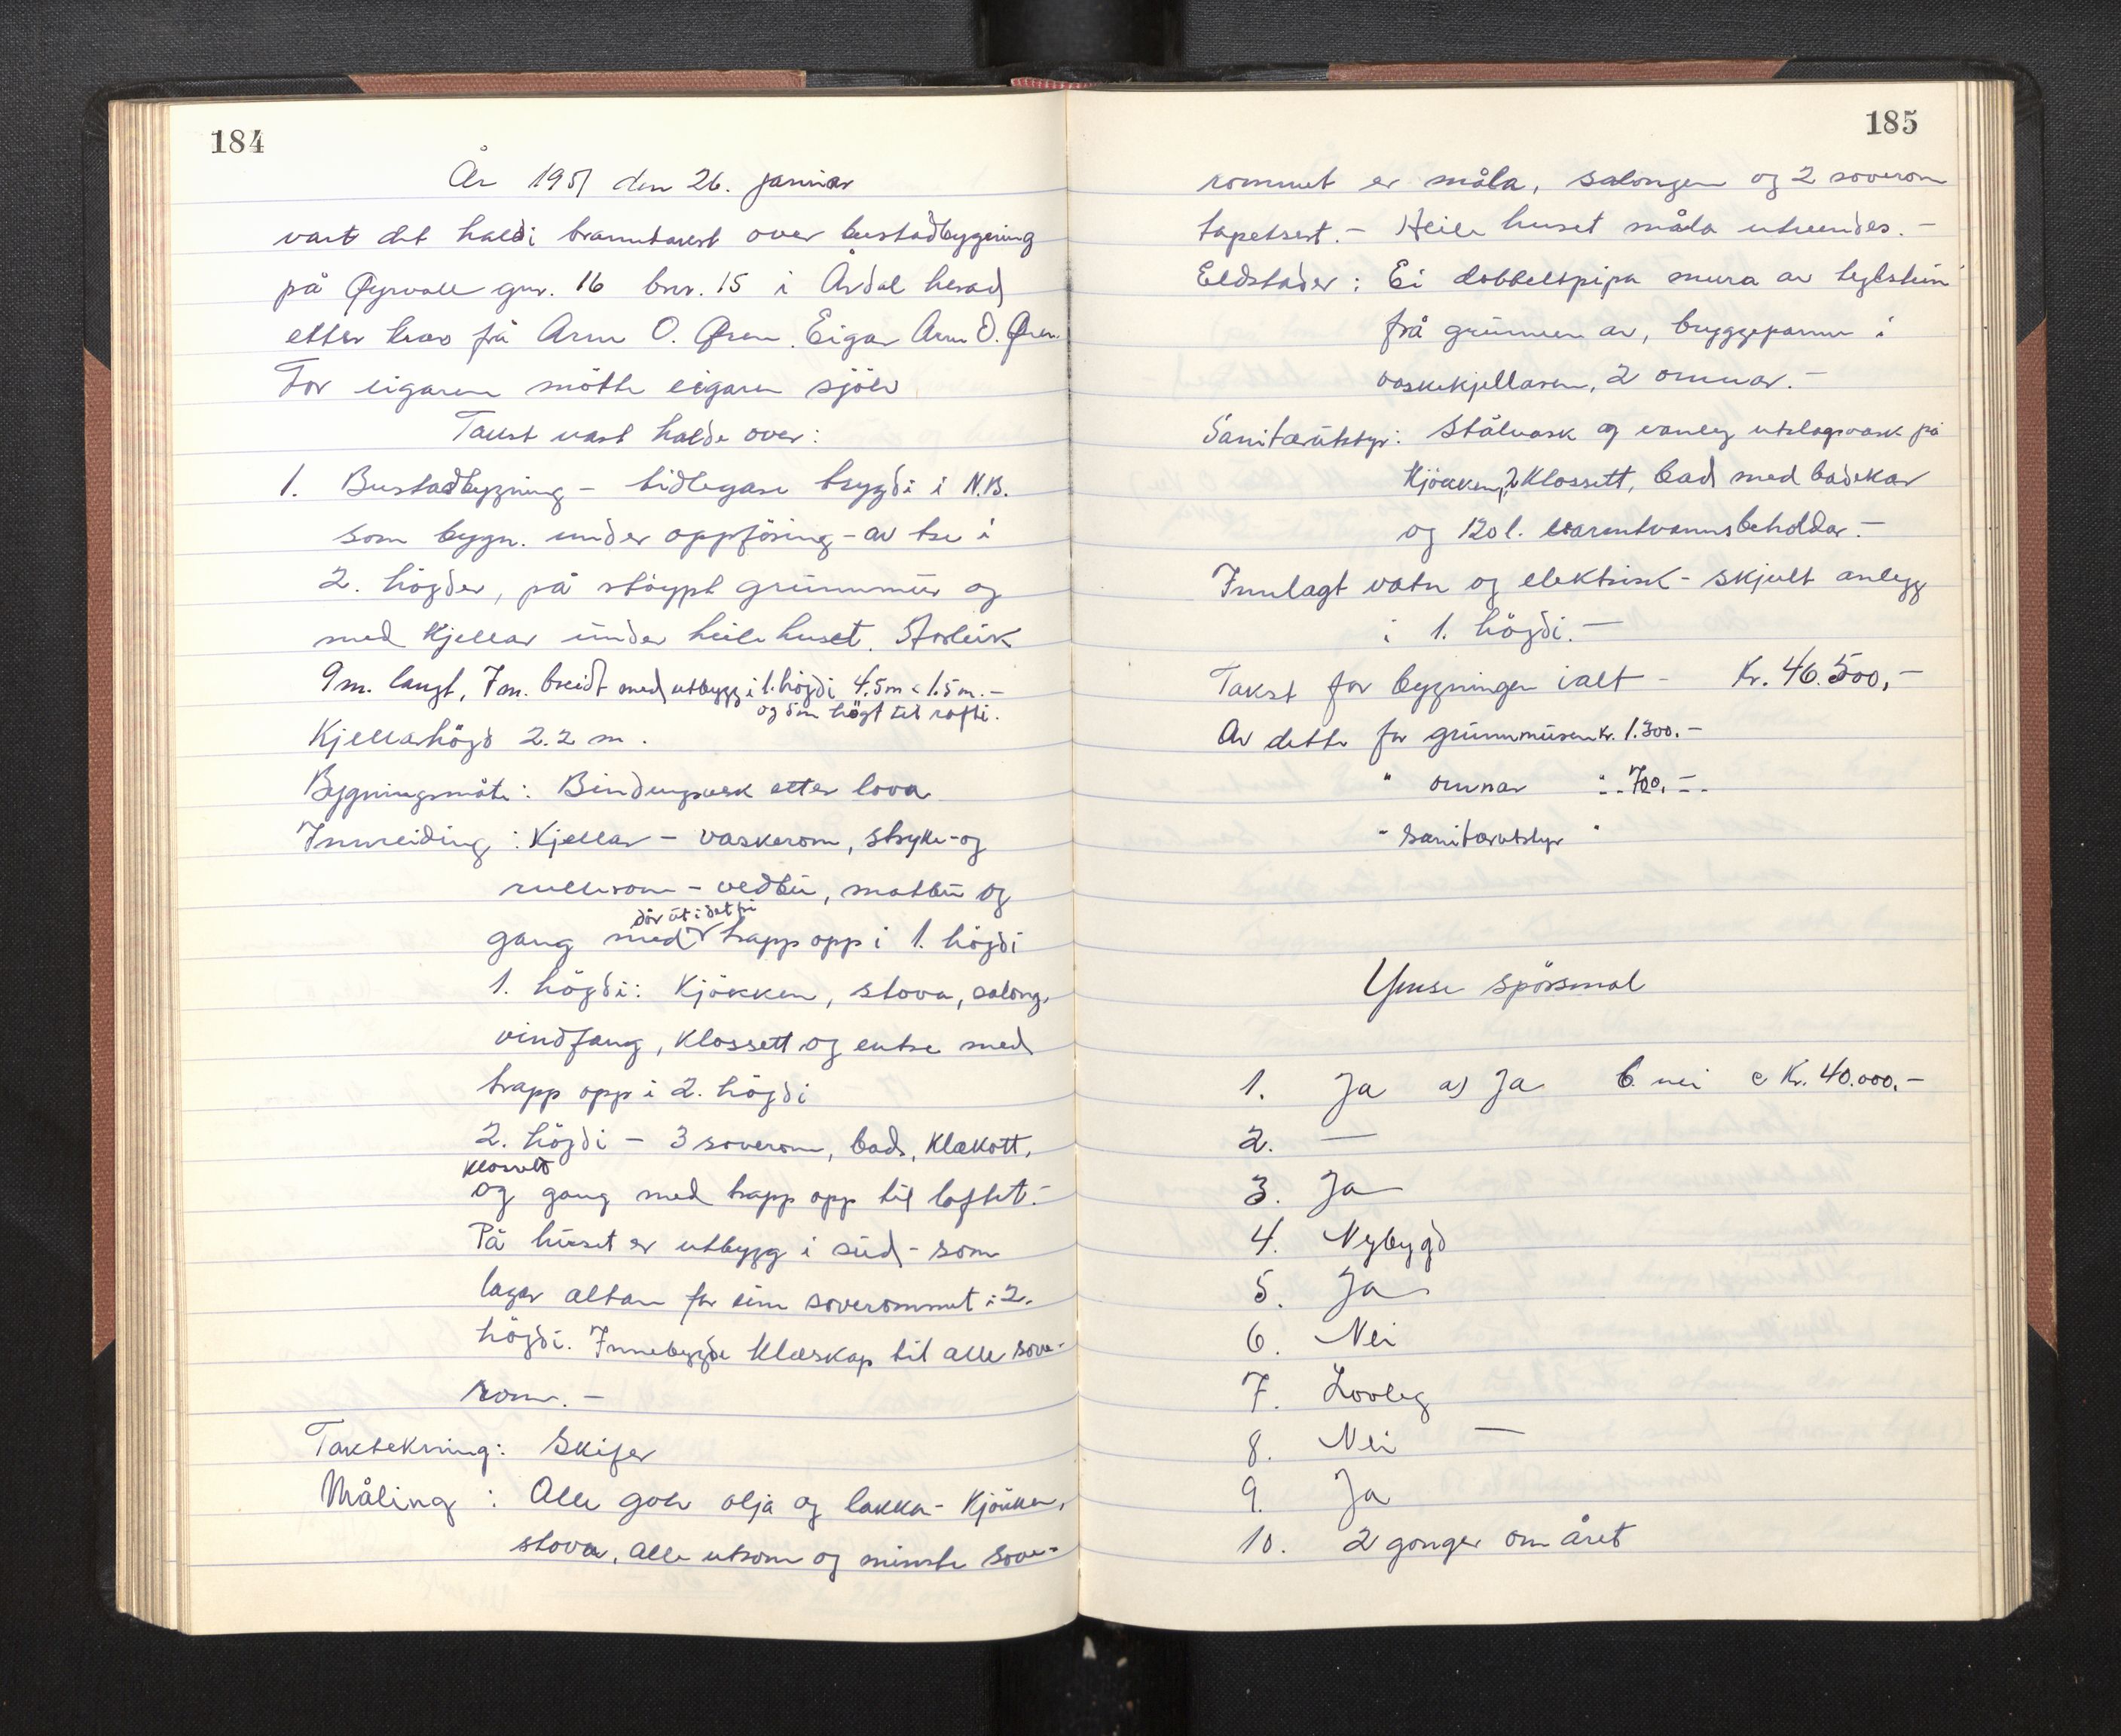 184
År 1951 den 26. januar
vart det haldi branntakst over bustadbygning
på Øyrvoll gnr. 16 bnr. 15 i Årdal herad
etter krav frå Arne O. Øren. Eigar Arne O. Øren.
For eigaren møtte eigaren sjölv
Takst vart halde over:
1. Bustadbygning – tidlegare trygdi i N.B.
som bygn. under oppföring – av tre i
2. högder, på stöypt grunnmur og
med kjellar under heile huset. Storleik
9 m. langt, 7 m. breidt med utbygg i 1. högdi 4.5m × 1.5 m. –
og 5m högt til rafti.
Kjellarhögd 2.2 m.
Bygningsmåte: Bindingsverk etter lova
Innreiding: Kjellar – vaskerom, stryke- og
rullerom – vedbu, matbu og
dör út i det fri
gang med trapp opp i 1. högdi
1. högdi: Kjökken, stova, salong,
vindfang, klossett og entre med
trapp opp i 2. högdi
2. högdi – 3 soverom, bad, klekott,
klossett
og gang med trapp opp til loftet. –
På huset er utbygg i sud – som
lagar altan for eine soverommet i 2.
högdi. Innebygde klesskap til alle sove-
rom. –
Taktekning: Skifer
Måling: Alle golv olja og lakka – Kjökken,
stova, alle utrom og minste sove-
185
rommet er måla, salongen og 2 soverom
tapetsert. – Heile huset måla utvendes. –
Eldstader: Ei dobbeltpipa mura av teglstein
frå grunnen av, bryggepanne i
vaskekjellaren, 2 omnar. –
Sanitærutstyr: Stålvask og vanleg utslagsvask på
kjökken, 2 klossett, bad med badekar
og 120 l. varmtvannsbeholdar. –
Innlagt vatn og elektrisk – skjult anlegg
i 1. högdi. –
Takst for bygningen ialt – Kr. 46.500,–
Av dette for grunnmuren kr. 1.300.–
" omnar " 700.–
" sanitærutstyr "
Ymse spörsmål
1. Ja a) Ja b. nei c Kr. 40.000.–
2. —
3. Ja
4. Nybygd
5. Ja
6. Nei
7. Lovleg
8. Nei —
9. Ja
10. 2 gonger om året